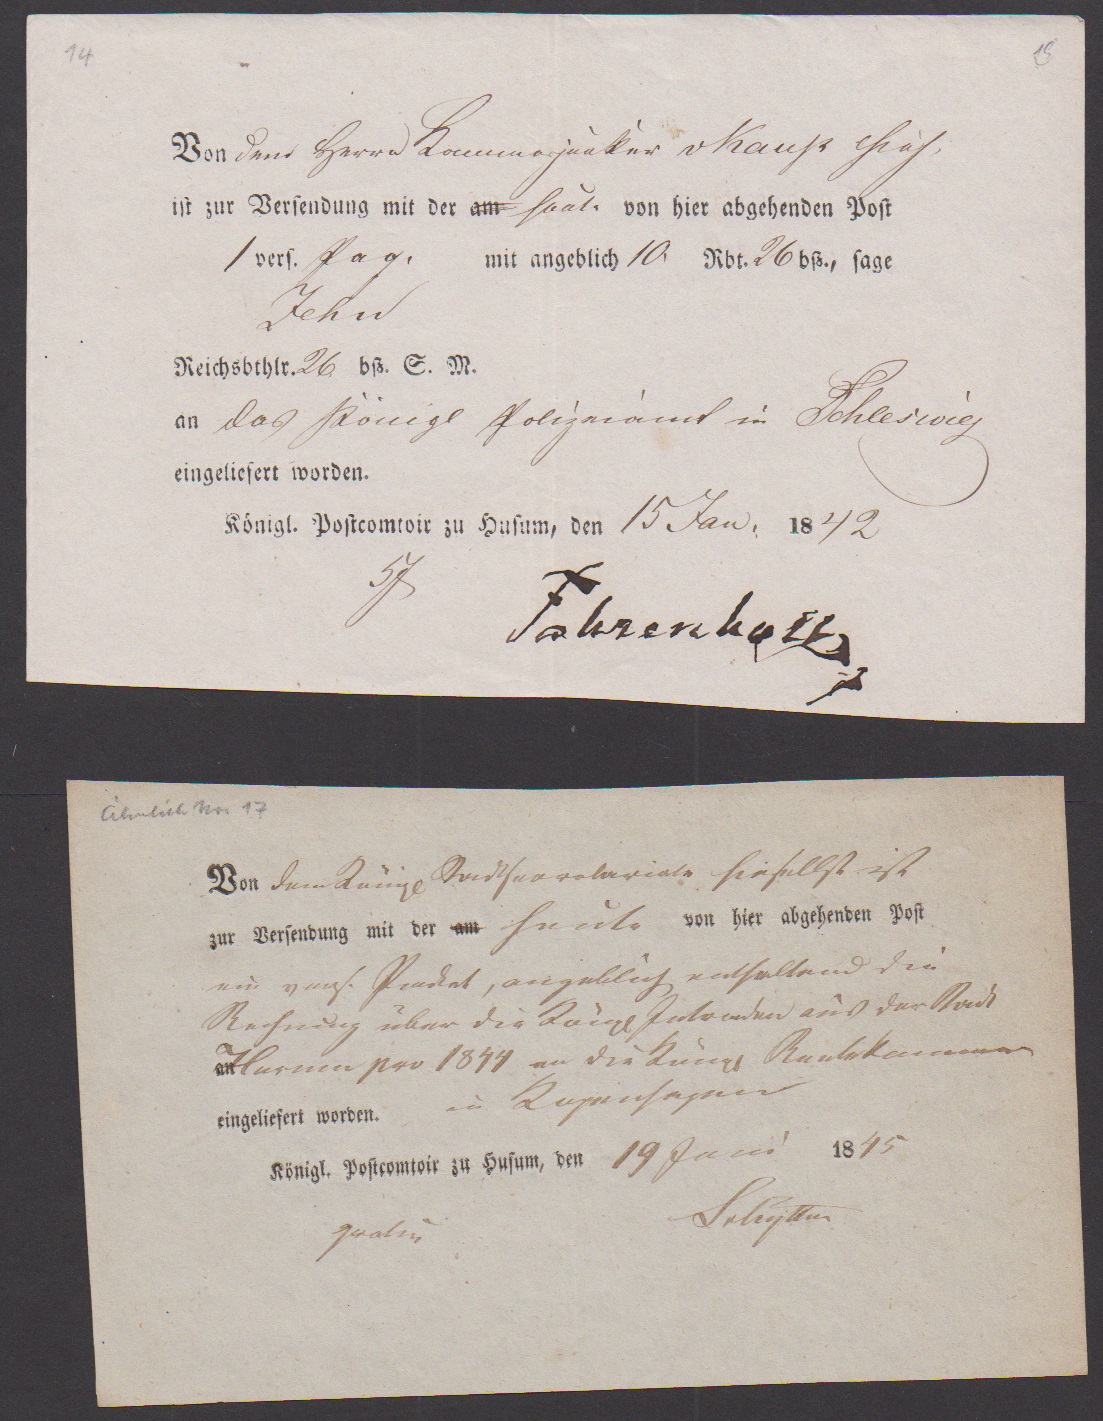 14
18
Von dem Herrn Kammerjunker v Kaup hies.
ist zur Versendung mit der am heut. von hier abgehenden Post
1 vers. Pag. mit angeblich 10 Rbt. 26 bß., sage
Zehn
Reichsbthlr. 26 bß. S. M.
an das Königl Polizeiamt in Schleswig
eingeliefert worden.
Königl. Postcomtoir zu Husum, den 15 Jan. 1842
Fahrenholtz
Ähnlich Nro 17
Von dem Königl Stadtsecretariate hieselbst ist
zur Versendung mit der am heute von hier abgehenden Post
ein vers. Packet, angeblich enthaltend die
Rechnung über die Königl Intraden aus der Stadt
an Husum pro 1844 an die Königl Rentekammer
eingeliefert worden. in Kopenhagen
Königl. Postcomtoir zu Husum, den 19 Juni 1845
gratis